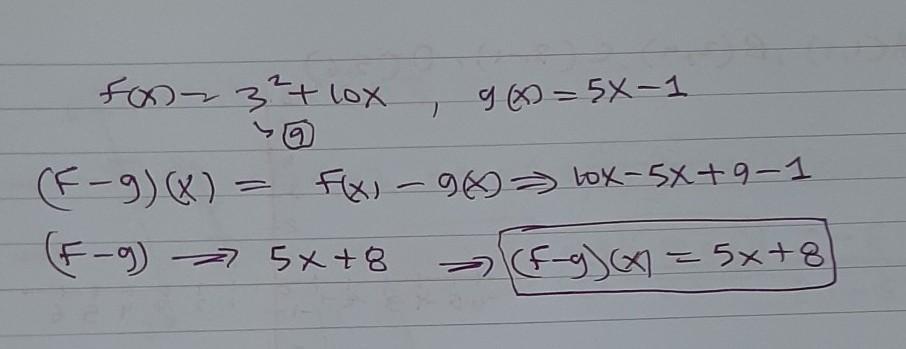 f(x) = 3² + 10x , g(x) = 5x - 1
↳ 9
(F - g)(x) = F(x) - g(x) ⇒ 10x - 5x + 9 - 1
(F - g) → 5x + 8 → (F - g)(x) = 5x + 8